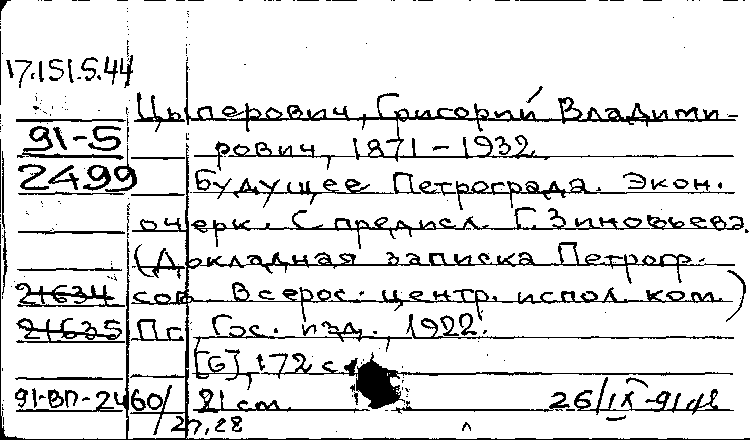 17.151.5.44
Цыперович, Григорий Владими-
91-5 рович, 1871-1932.
2499 Будущее Петрограда. Экон.
очерк. С предисл. Г. Зиновьева.
(Докладная записка Петрогр.
21634 сов. Всерос. центр. испол. ком.)
21635 Пг., Гос. изд., 1922.
[6], 172 с.
91-ВП-2460/ 21 cm. 26/IX-91
27,28